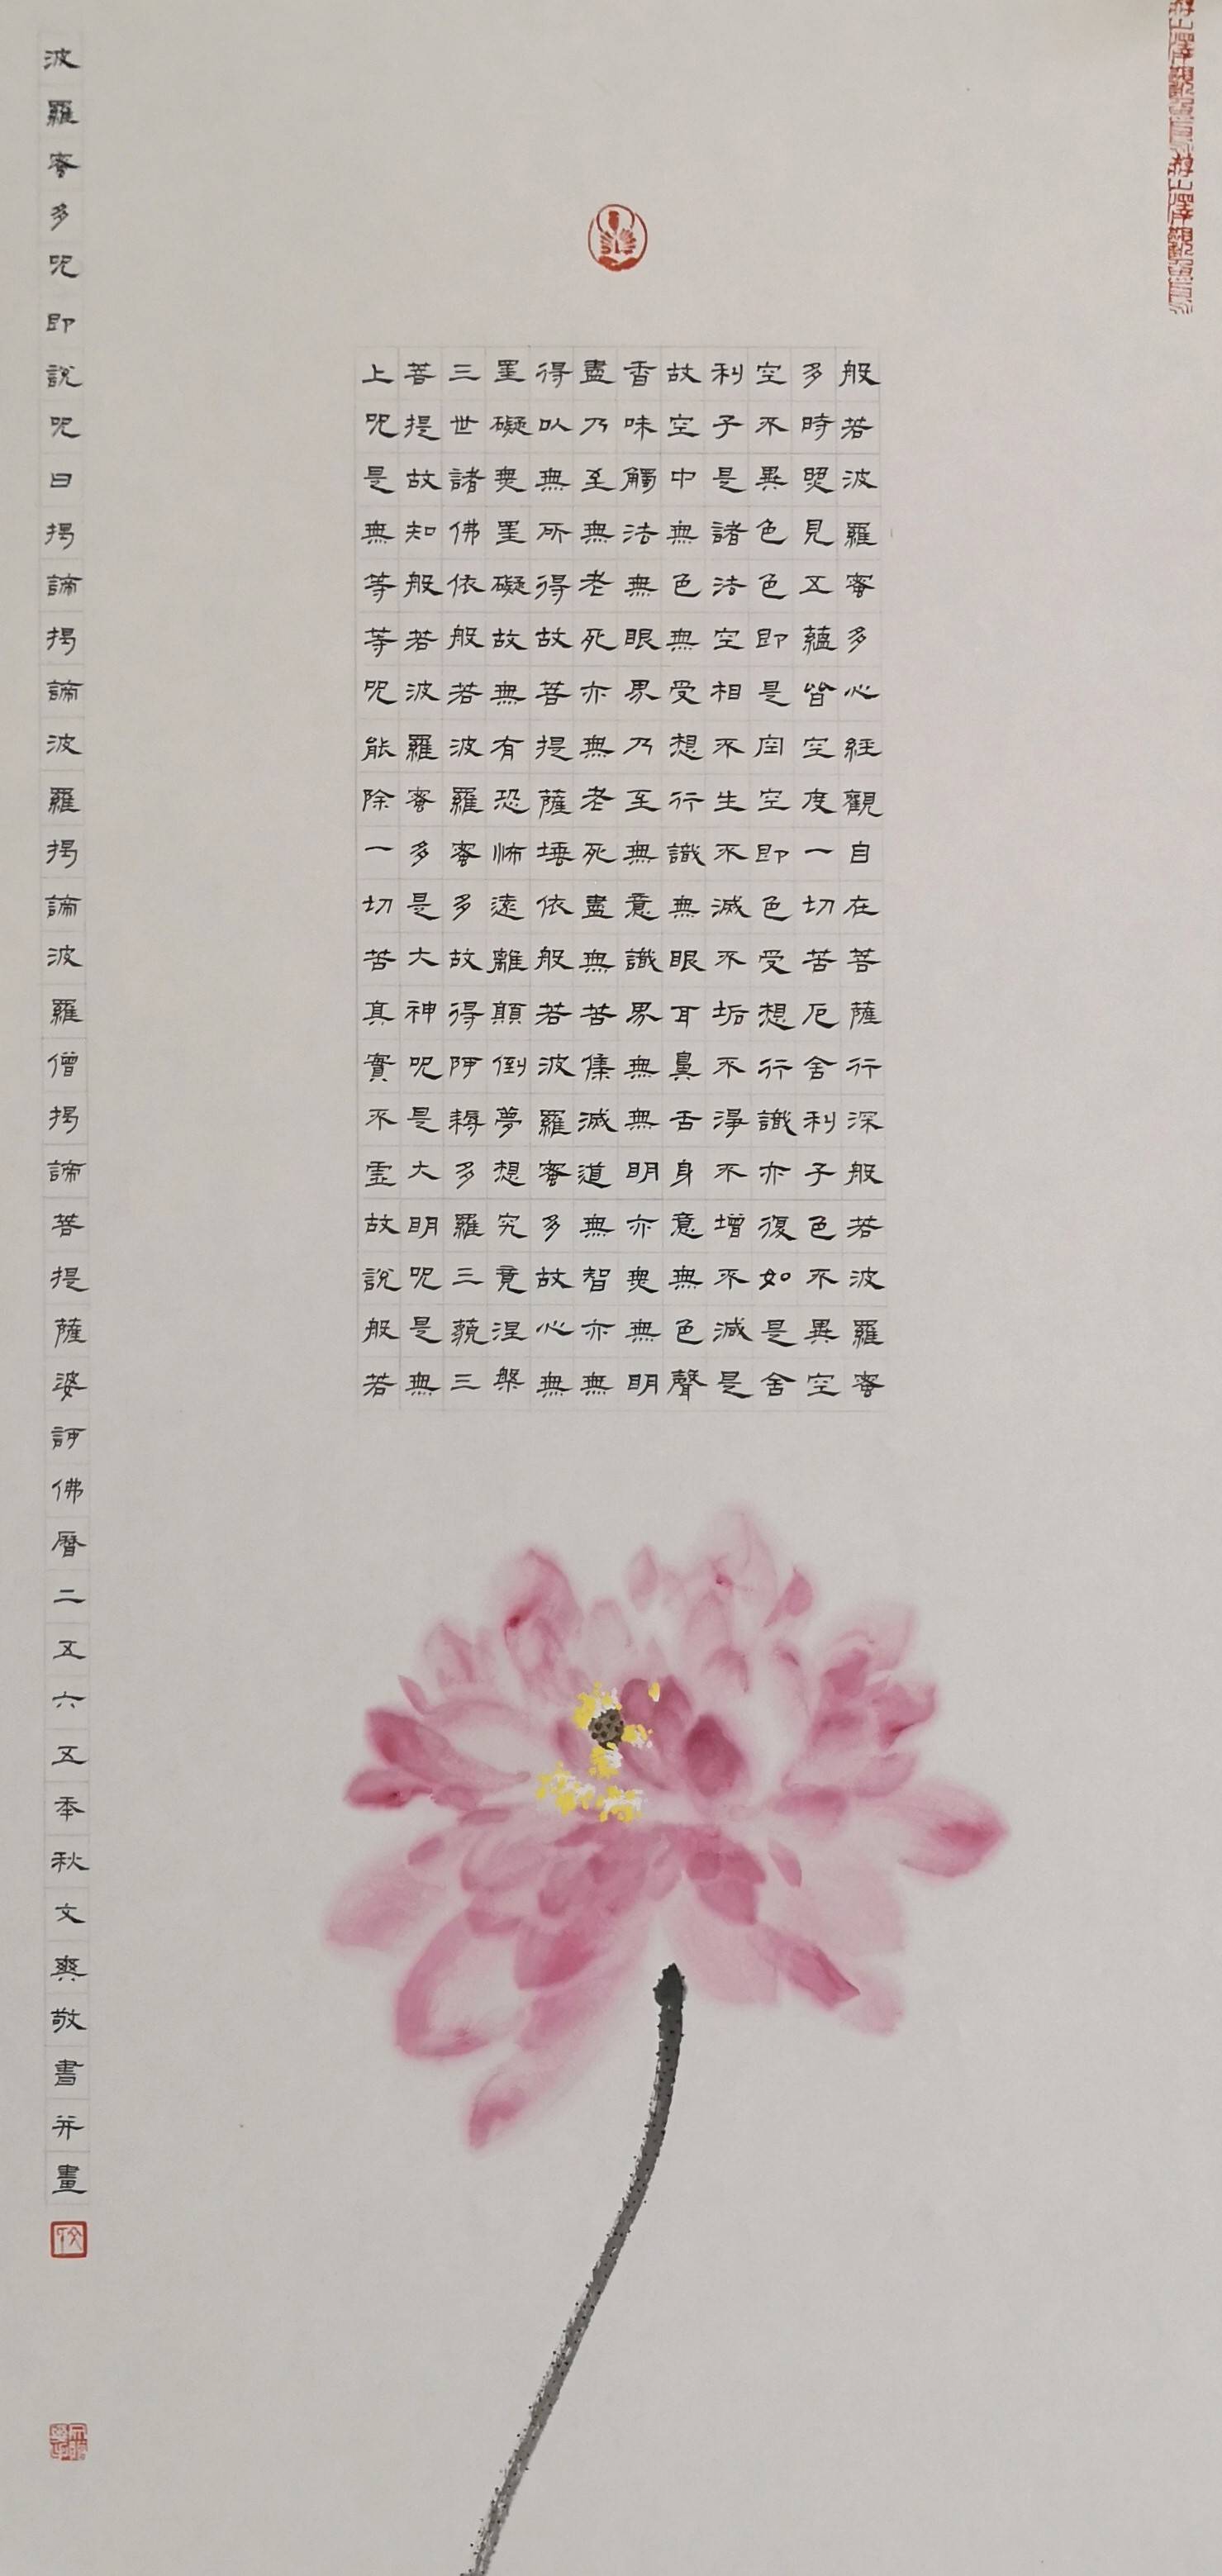 游山澤觀魚鳥游山澤觀魚鳥
般若波羅蜜多心經觀自在菩薩行深般若波羅蜜
多時照見五蘊皆空度一切苦厄舍利子色不異空
空不異色色即是空空即色受想行識亦復如是舍
利子是諸法空相不生不滅不垢不淨不增不減是
故空中無色無受想行識無眼耳鼻舌身意無色聲
香味觸法無眼界乃至無意識界無無明亦無無明
盡乃至無老死亦無老死盡無苦集滅道無智亦無
得以無所得故菩提薩埵依般若波羅蜜多故心無
罣礙無罣礙故無有恐怖遠離顛倒夢想究竟涅槃
三世諸佛依般若波羅蜜多故得阿耨多羅三藐三
菩提故知般若波羅蜜多是大神咒是大明咒是無
上咒是無等等咒能除一切苦真實不虛故說般若
波羅蜜多咒即說咒曰揭諦揭諦波羅揭諦波羅僧揭諦菩提薩婆訶佛曆二五六五年秋文爽敬書并畫